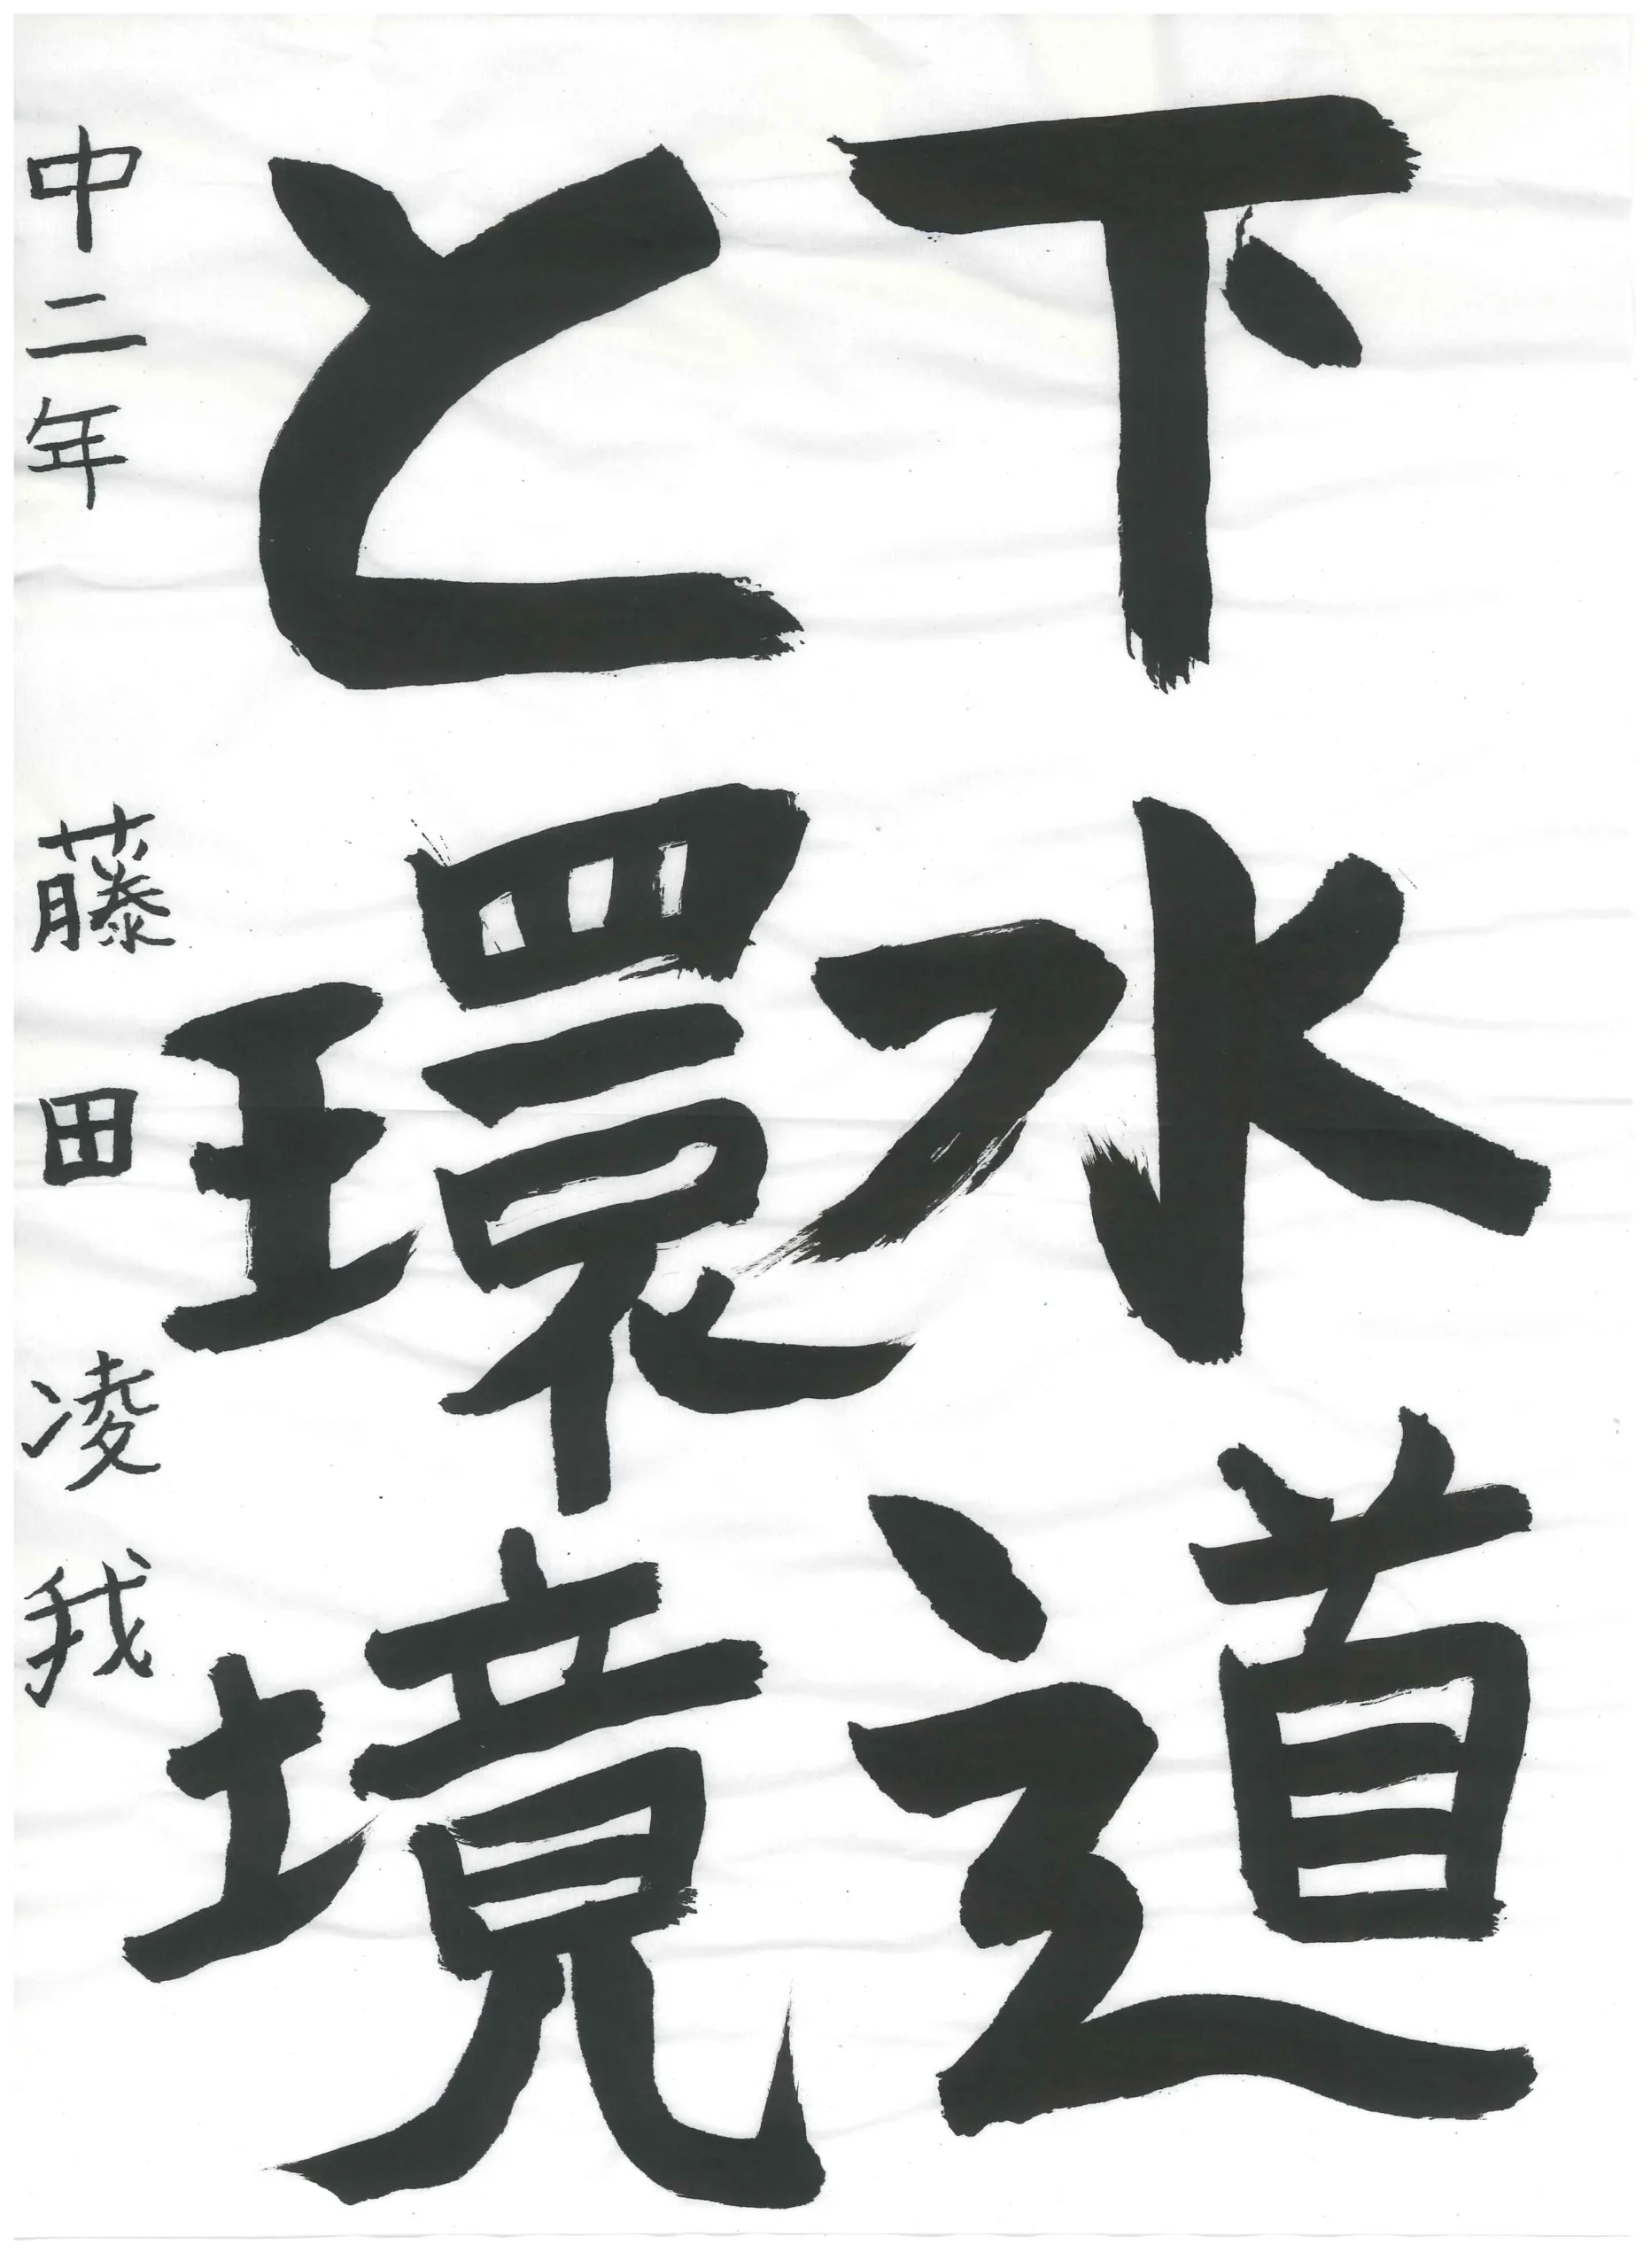 下水道
と環境
中二年 藤田凌我